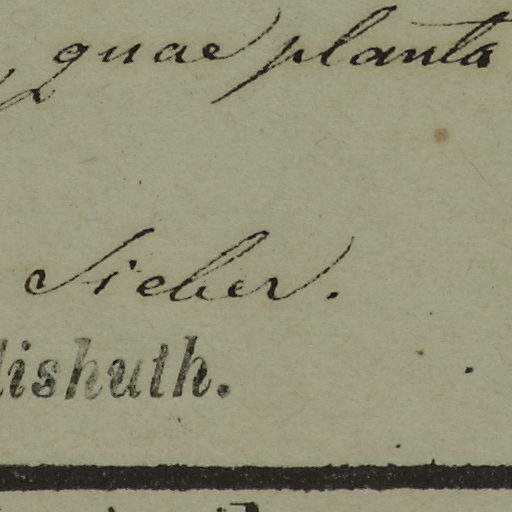 quae planta
Sieber.
lishuth.